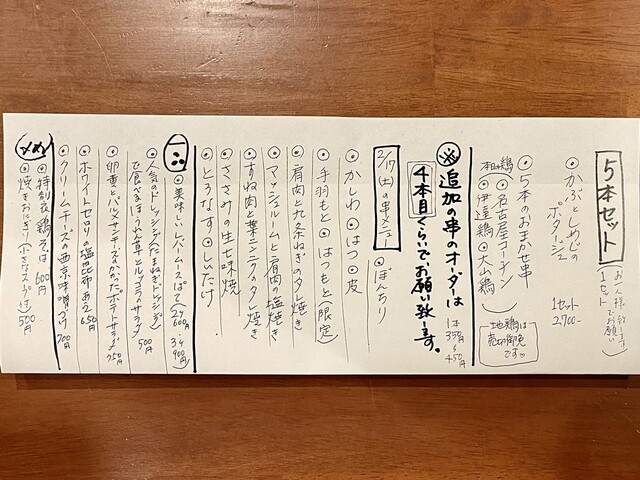 5本セット
(お一人様
1セット
でお願い
致します)
◎かぶとしめじの
ポタージュ
1セット
2,700-
◎5本のおまかせ串
本日の鶏
◎名古屋コーチン
◎伊達鶏◎大山鶏
地鶏は
売切御免
です
※追加の串のオーダーは
4本目ぐらいで、お願い致します。
1本
350円
〜
450円
2/17(土)の串メニュー
◎ぼんちり
◎かしわ◎はつ◎皮
◎手羽もと◎はつもと(限定)
◎肩肉と九条ねぎのタレ焼き
◎マッシュルームと肩肉の塩焼き
◎すね肉と葉ニンニクのタレ焼き
◎ささみの生七味焼
◎とろなす◎しいたけ
◎美味しいレバームースぱて(2ヶ600円、3ヶ900円)
◎人気のドレッシング(たまねぎドレッシング)
で食べるほうれん草とルッコラのサラダ
500円
◎卵黄とパルメザンチーズをかけたポテトサラダ
750円
◎ホワイトセロリの塩昆布あえ
650円
◎クリームチーズの西京味噌づけ
700円
〆め
◎特製夜鶏そば 600円
◎焼きおにぎり(小さなスープ付)
500円